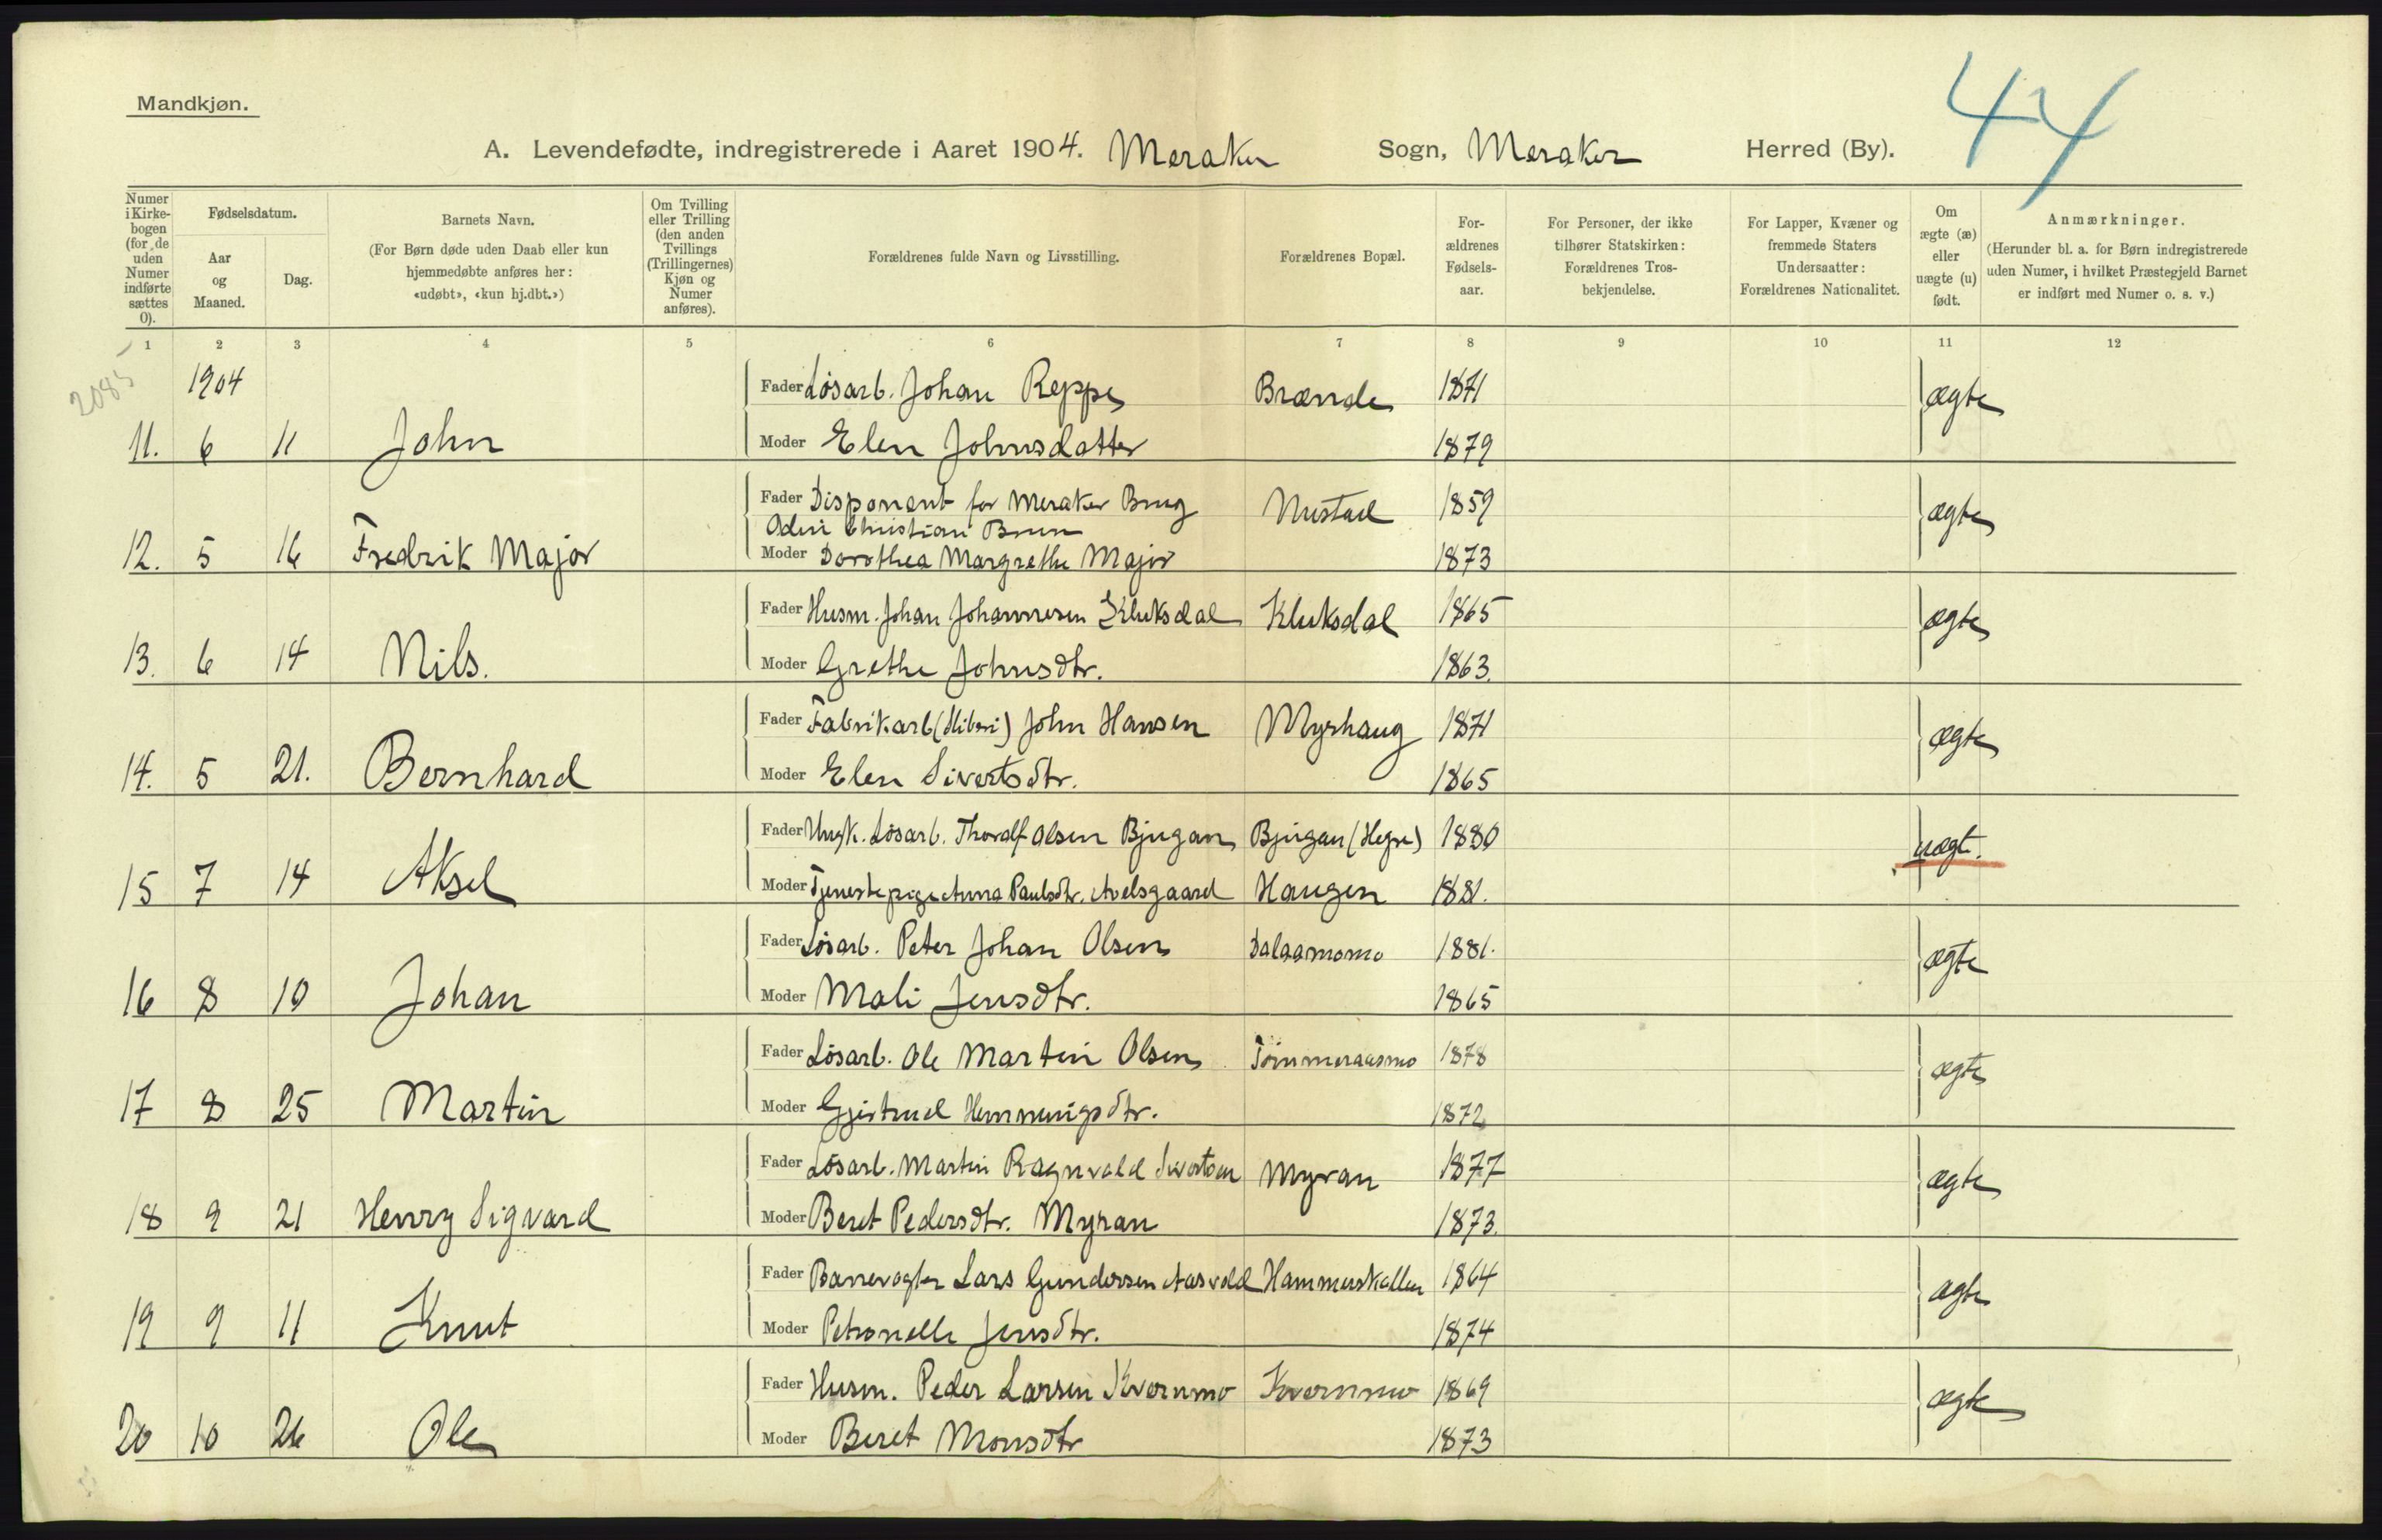 Mandkjøn.
44
A. Levendefødte, indregistrerede i Aaret 1904. Meraker Sogn, Meraker Herred (By).
Numer i Kirke-bogen (for de uden Numer indførte sættes 0).
Fødselsdatum.
Aar og Maaned.
Dag.
Barnets Navn.
(For Børn døde uden Daab eller kun hjemmedøbte anføres her: «udøbt», «kun hj.dbt.»)
Om Tvilling eller Trilling (den anden Tvillings (Trillingernes) Kjøn og Numer anføres).
Forældrenes fulde Navn og Livsstilling.
Forældrenes Bopæl.
For-ældrenes Fødsels-aar.
For Personer, der ikke tilhører Statskirken: Forældrenes Tros-bekjendelse.
For Lapper, Kvæner og fremmede Staters Undersaatter: Forældrenes Nationalitet.
Om ægte (æ) eller uægte (u) født.
Anmærkninger.
(Herunder bl. a. for Børn indregistrerede uden Numer, i hvilket Præstegjeld Barnet er indført med Numer o. s. v.)
1 2 3 4 5 6 7 8 9 10 11 12
2085
1904
Fader Løsarb. Johan Reppe Brænde 1871 ægte
11. 6 11 John Moder Elen Johnsdatter 1879
Fader Disponent for Meraker Brug Nustad 1859 ægte
Odin Christian Brun
12. 5 16 Fredrik Major Moder Dorothea Margrethe Major 1873
Fader Husm. Johan Johannesen Kluksdal Kluksdal 1865 ægte
13. 6 14 Nils. Moder Grethe Johnsdtr. 1863.
Fader Fabrikarb John Hansen Myrhaug 1871 ægte
14. 5 21. Bernhard Moder Elen Sivertsdtr. 1865
Fader Ungk. Løsarb. Thoralf Olsen Bjugan Bjugan (Hegre) 1880 uægt.
15 7 14 Aksel Moder Tjenestepige Anna Paulsdtr. Avelsgaard Haugen 1881.
Fader Løsarb. Peter Johan Olsen Dalaamomo 1881. ægte
16 8 10 Johan Moder Mali Jensdtr. 1865
Fader Løsarb. Ole Martin Olsen Tømmeraasmo 1878 ægte
17 8 25 Martin Moder Gjertrud Hemmingsdtr. 1872
Fader Løsarb. Martin Ragnvald Sivertsen Myran 1877 ægte
18 9 21 Henry Sigvard Moder Beret Pedersdtr. Myran 1873.
Fader Banevogter Lars Gundersen Aasvold Hammerskallen 1864 ægte
19 9 11 Knut Moder Petronelle Jensdtr. 1874
Fader Husm. Peder Larsen Kvernmo Kvernmo 1869 ægte
20 10 26 Ole Moder Beret Monsdtr 1873